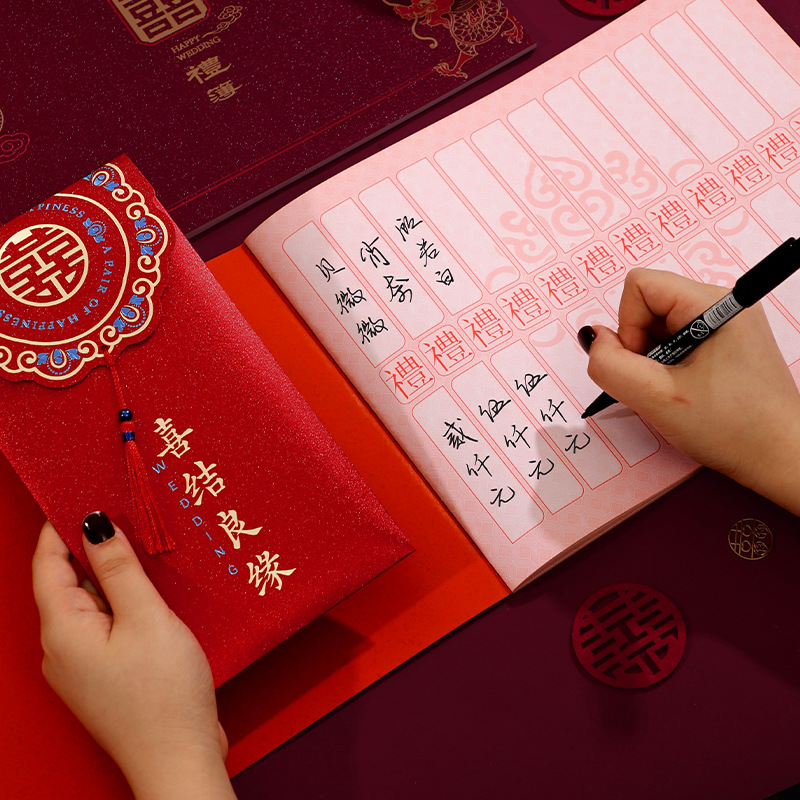 囍
HAPPY
WEDDING
禮簿
HAPPINESS A PAIR OF HAPPINESS
囍
喜结良缘
WEDDING
贝微微
肖奈
顾若白
禮禮禮禮禮禮禮禮禮禮禮
贰仟元
伍仟元
伍仟元